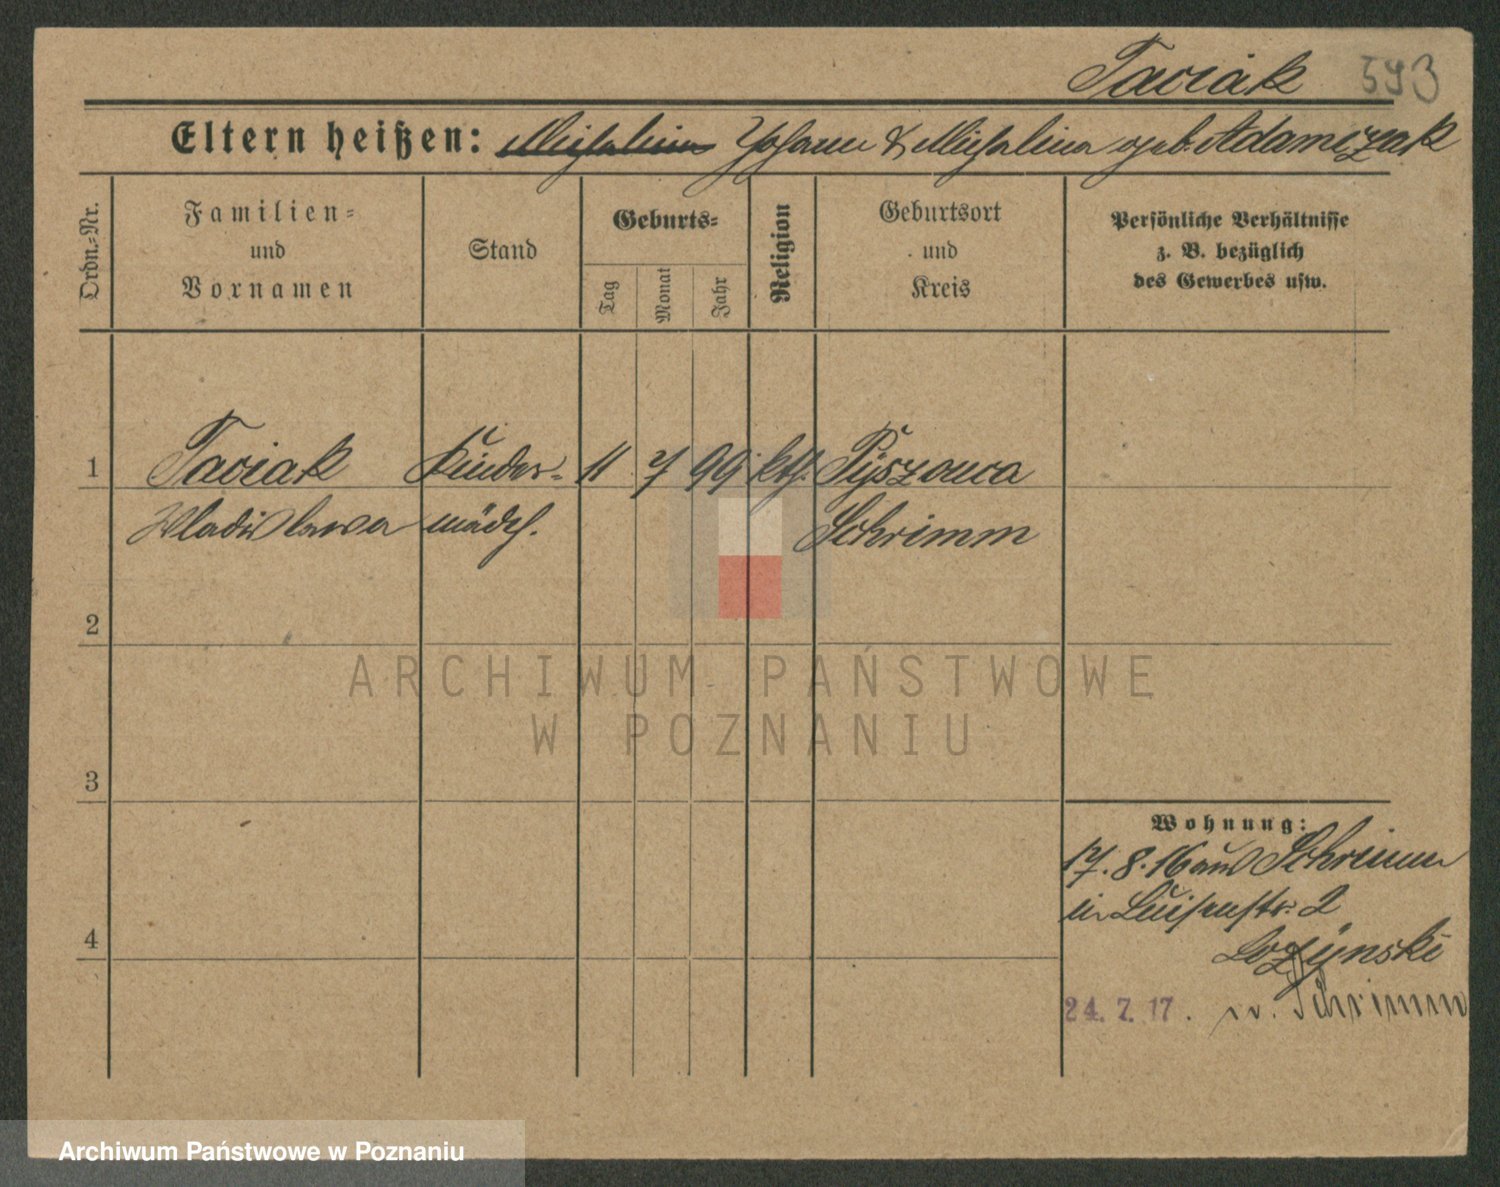 Taciak 593
Eltern heißen: Michalina Johann & Michalina geb. Adamczak
Ordn.-Nr.
Familien-
und
Vornamen
Stand
Geburts-
Tag
Monat
Jahr
Religion
Geburtsort
und
Kreis
Persönliche Verhältnisse
z. B. bezüglich
des Gewerbes usw.
1 Taciak Kinder- 11 7 99 kth. Pyszonca
Wladislawa mädch. Schrimm
2
ARCHIWUM PAŃSTWOWE
W POZNANIU
3
Wohnung:
17. 8. 16 aus Schrimm
in Luisenstr. 2
4
Lozynski
24. 7. 17. n. Schrimm
Archiwum Państwowe w Poznaniu